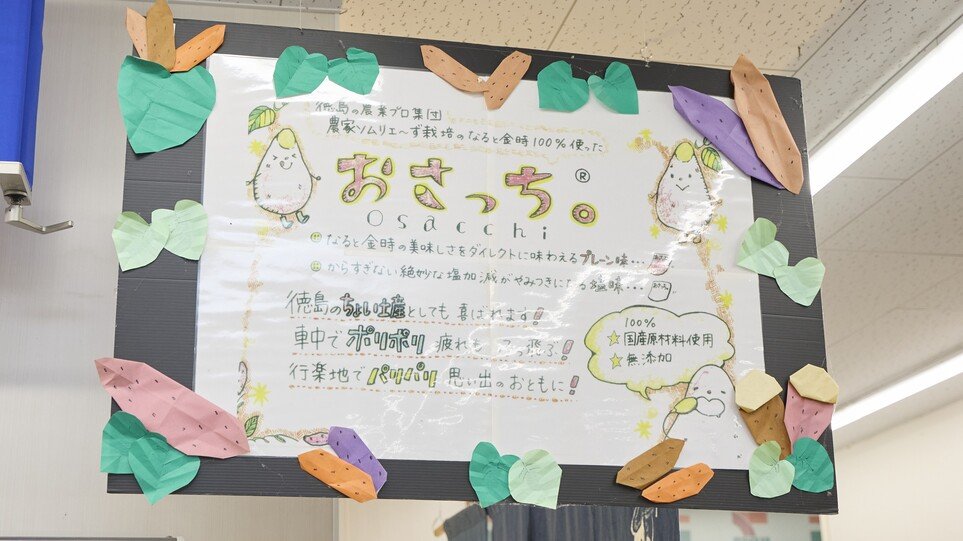 徳島の農業プロ集団
農家ソムリエ〜ず栽培のなると金時100%使った
おさっち。®
Osacchi
なると金時の美味しさをダイレクトに味わえるプレーン味…
からすぎない絶妙な塩加減がやみつきになる塩味…
徳島のちょい土産としても喜ばれます!
車中でポリポリ疲れも っ飛ぶ!
行楽地でパリパリ思い出のおともに!
100%
☆国産原材料使用
☆無添加